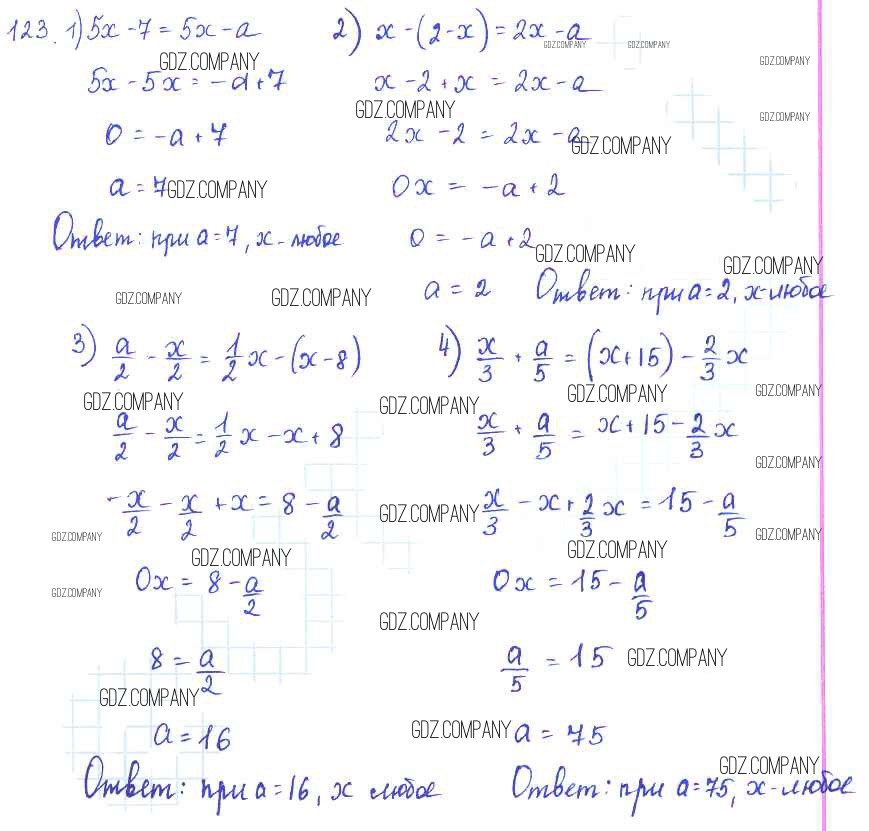 123. 1) 5x - 7 = 5x - a
GDZ.COMPANY
5x - 5x = -a + 7
0 = -a + 7
a = 7
GDZ.COMPANY
Ответ: при a = 7, x - любое
GDZ.COMPANY
GDZ.COMPANY
2) x - (2 - x) = 2x - a
GDZ.COMPANY
GDZ.COMPANY
GDZ.COMPANY
x - 2 + x = 2x - a
GDZ.COMPANY
GDZ.COMPANY
2x - 2 = 2x - a
GDZ.COMPANY
0x = -a + 2
0 = -a + 2
GDZ.COMPANY
GDZ.COMPANY
a = 2 Ответ: при a = 2, x - любое
3) a/2 - x/2 = 1/2 x - (x - 8)
GDZ.COMPANY
a/2 - x/2 = 1/2 x - x + 8
- x/2 - x/2 + x = 8 - a/2
GDZ.COMPANY
GDZ.COMPANY
0x = 8 - a/2
GDZ.COMPANY
8 = a/2
GDZ.COMPANY
a = 16
Ответ: при a = 16, x любое
4) x/3 + a/5 = (x + 15) - 2/3 x
GDZ.COMPANY
GDZ.COMPANY
GDZ.COMPANY
x/3 + a/5 = x + 15 - 2/3 x
GDZ.COMPANY
GDZ.COMPANY
x/3 - x + 2/3 x = 15 - a/5
GDZ.COMPANY
GDZ.COMPANY
0x = 15 - a/5
GDZ.COMPANY
a/5 = 15
GDZ.COMPANY
GDZ.COMPANY
a = 75
GDZ.COMPANY
Ответ: при a = 75, x - любое